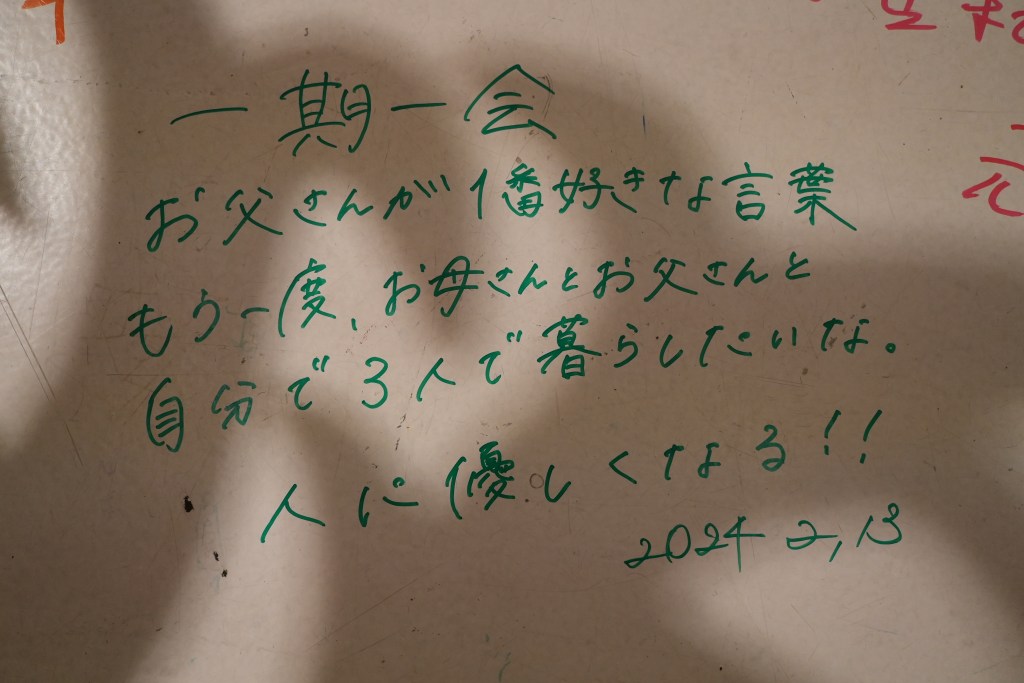 一期一会
お父さんが1番好きな言葉
もう一度、お母さんとお父さんと
自分で3人で暮らしたいな。
人に優しくなる!!
2024 2,13